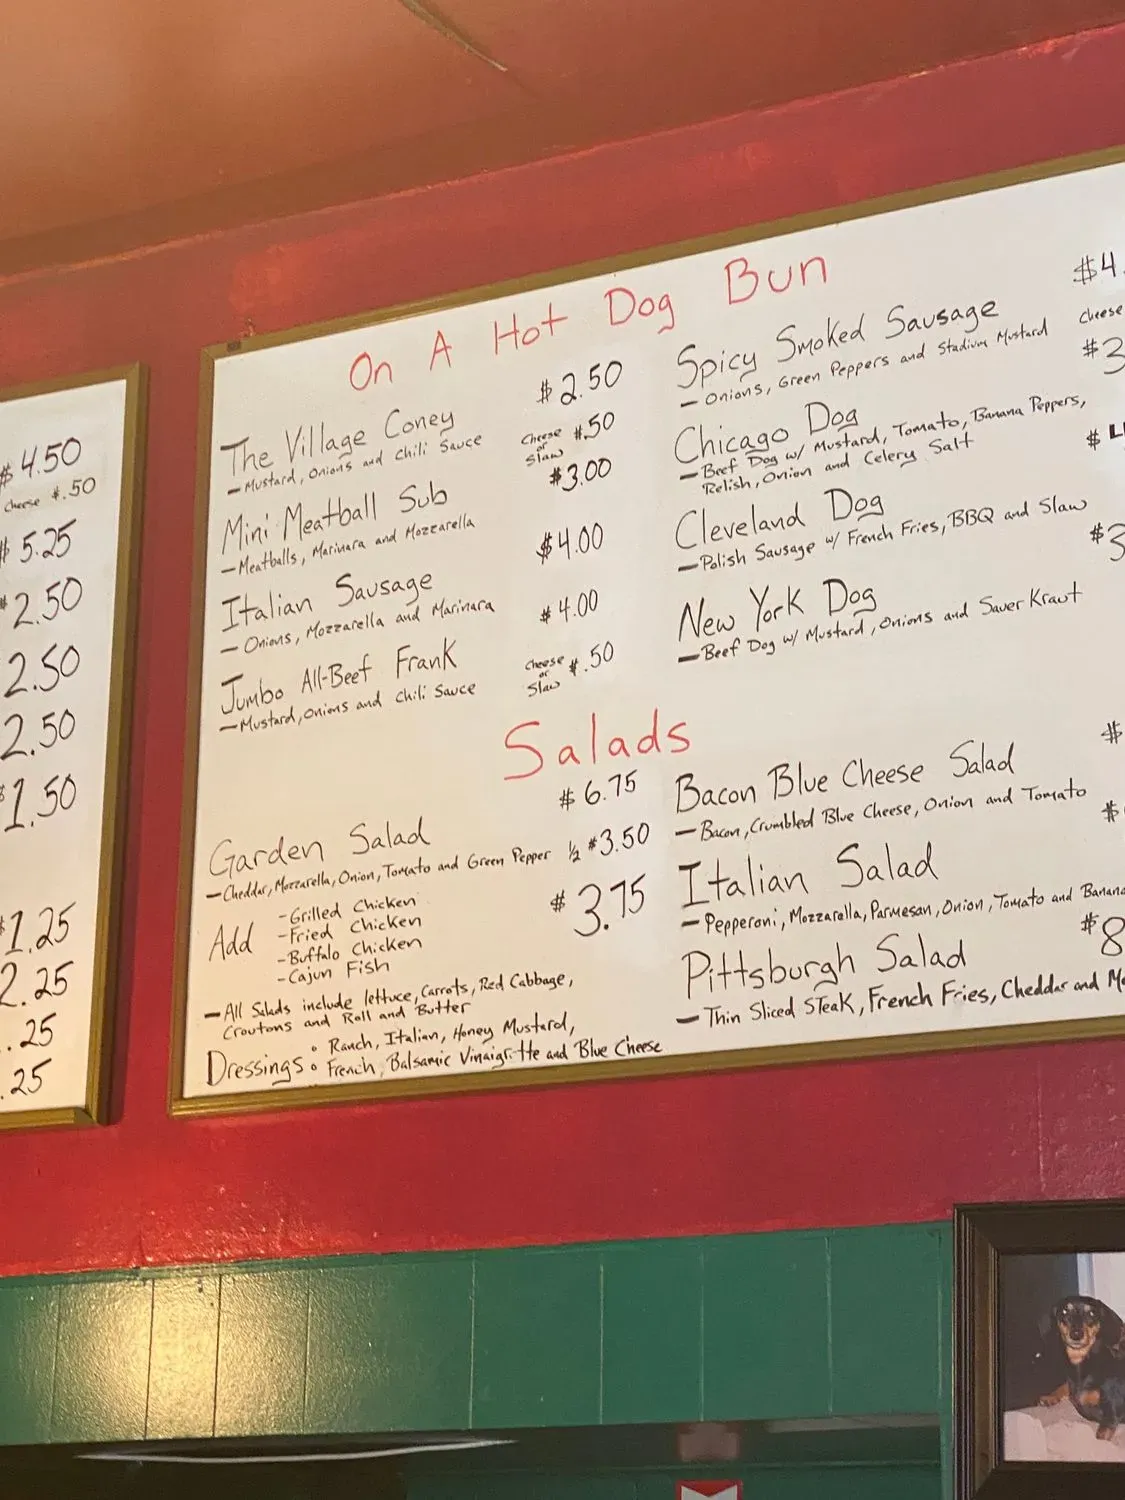 $4.50
cheese $.50
$5.25
$2.50
2.50
2.50
$1.50
$1.25
2.25
.25
.25
On A Hot Dog Bun
The Village Coney $2.50
- Mustard, Onions and Chili Sauce Cheese or Slaw $.50
Mini Meatball Sub $3.00
- Meatballs, Marinara and Mozzarella
Italian Sausage $4.00
- Onions, Mozzarella and Marinara
Jumbo All-Beef Frank $4.00
- Mustard, Onions and Chili Sauce Cheese or Slaw $.50
Spicy Smoked Sausage $4.
- Onions, Green Peppers and Stadium Mustard Cheese
Chicago Dog $3
- Beef Dog w/ Mustard, Tomato, Banana Peppers,
Relish, Onion and Celery Salt
Cleveland Dog $4
- Polish Sausage w/ French Fries, BBQ and Slaw
New York Dog $3
- Beef Dog w/ Mustard, Onions and Sauer Kraut
Salads
Garden Salad $6.75
- Cheddar, Mozzarella, Onion, Tomato and Green Pepper ½ $3.50
Add $3.75
- Grilled Chicken
- Fried Chicken
- Buffalo Chicken
- Cajun Fish
- All Salads include lettuce, Carrots, Red Cabbage,
Croutons and Roll and Butter
Dressings: Ranch, Italian, Honey Mustard,
French, Balsamic Vinaigritte and Blue Cheese
Bacon Blue Cheese Salad $
- Bacon, Crumbled Blue Cheese, Onion and Tomato
Italian Salad $
- Pepperoni, Mozzarella, Parmesan, Onion, Tomato and Banana
Pittsburgh Salad $8
- Thin Sliced Steak, French Fries, Cheddar and